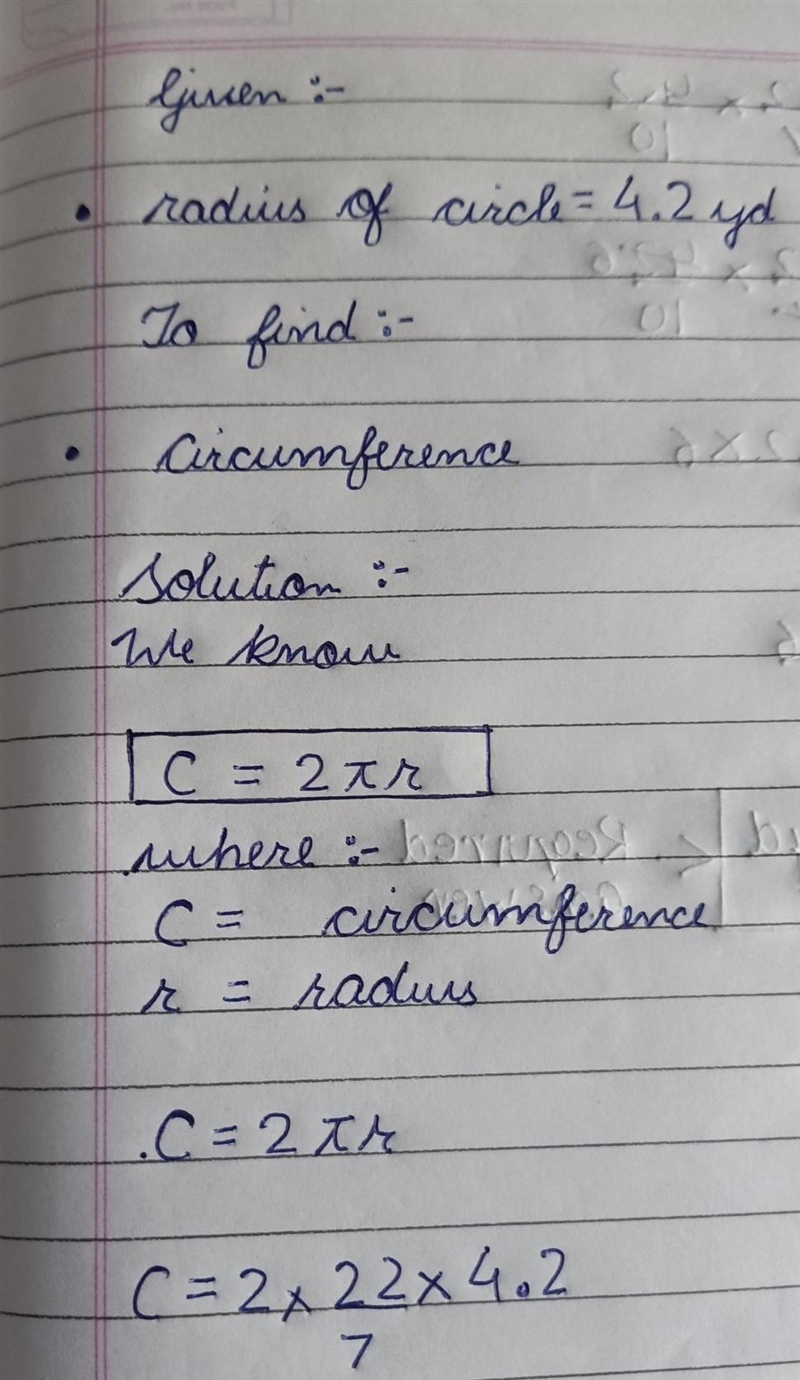 Given :-
• radius of circle = 4.2 yd
To find :-
• Circumference
Solution :-
We know
C = 2πr
where :-
C = circumference
r = radius
.C = 2πr
C = 2 × 22/7 × 4.2